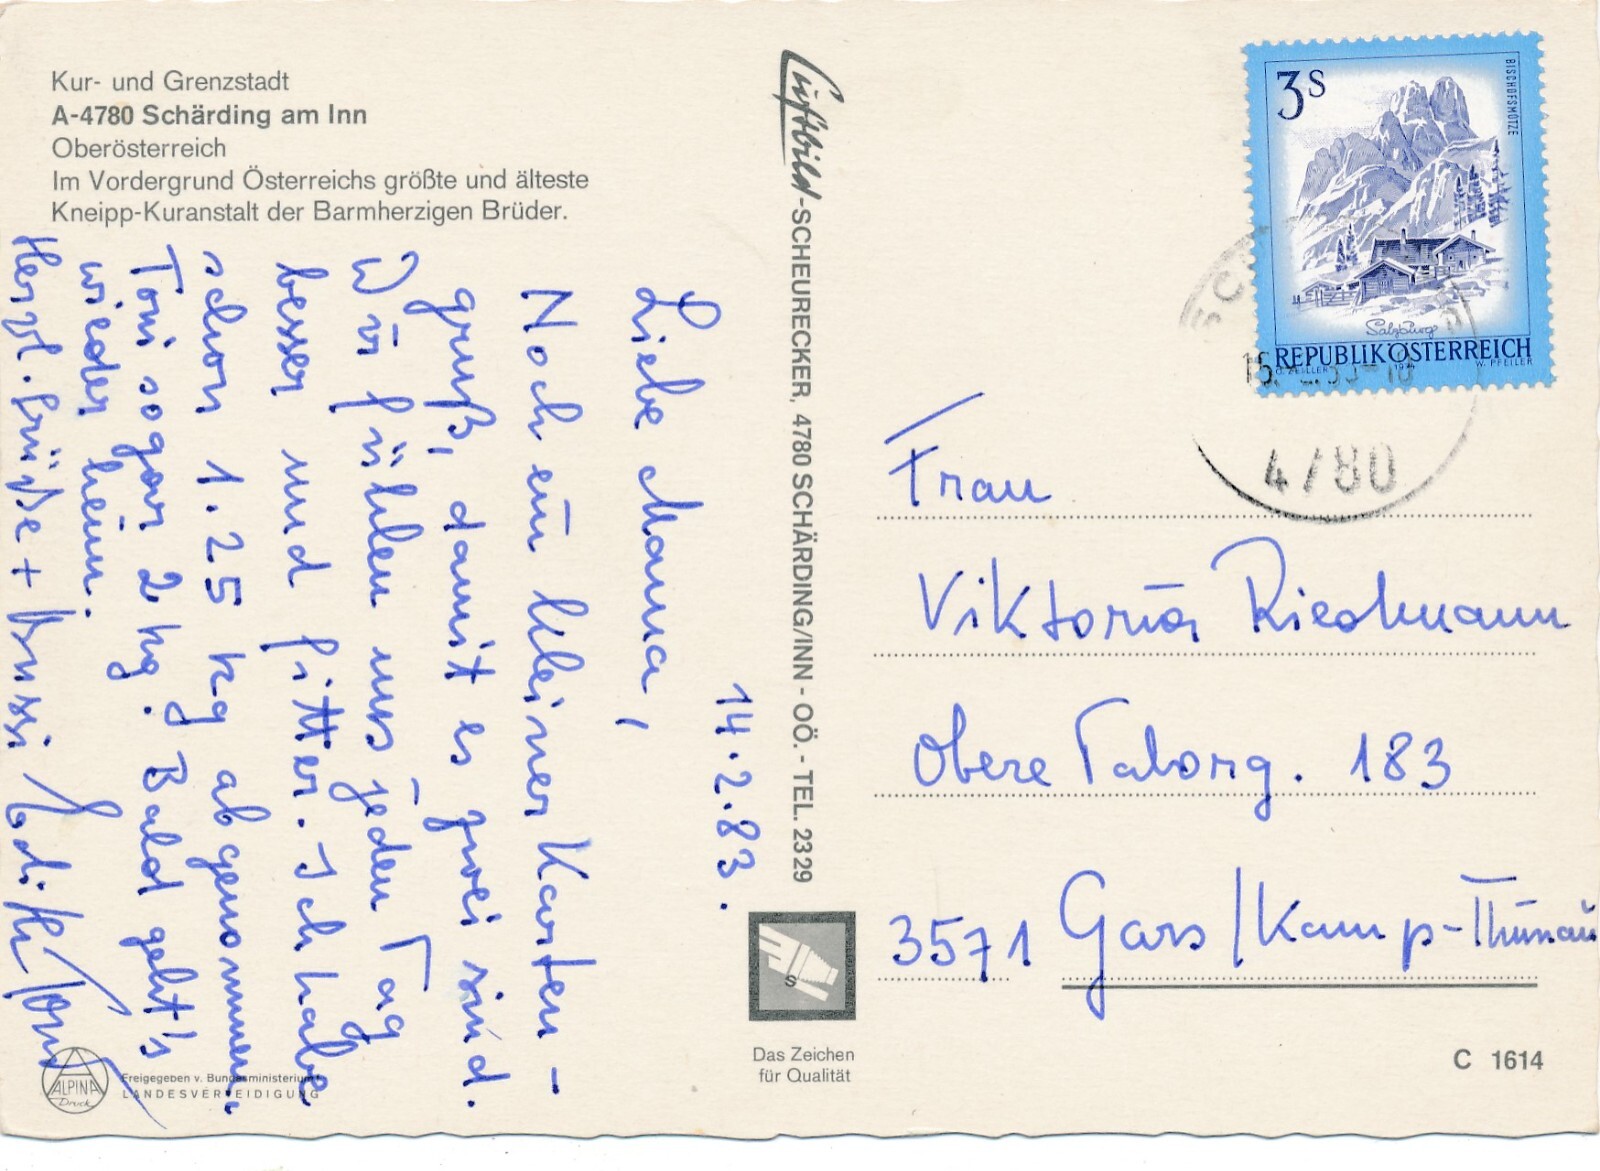 Kur- und Grenzstadt
A-4780 Schärding am Inn
Oberösterreich
Im Vordergrund Österreichs größte und älteste
Kneipp-Kuranstalt der Barmherzigen Brüder.
14.2.83.
Liebe Mama,
Noch ein kleiner Karten-
gruß, damit es zwei sind.
Wir fühlen uns jeden Tag
besser und fitter. Ich habe
schon 1.25 kg abgenommen,
Toni sogar 2 kg. Bald geht's
wieder heim.
Herzl. Grüße + Bussi
Luftbild-SCHEURECKER, 4780 SCHÄRDING/INN - OÖ. - TEL. 2329
Das Zeichen
für Qualität
ALPINA
Druck
Freigegeben v. Bundesministerium f.
LANDESVERTEIDIGUNG
3S
BISCHOFSMÜTZE
Salzburg
REPUBLIK ÖSTERREICH
W. PFEILER
4780
Frau
Viktoria Riedmann
Obere Taborg. 183
3571 Gars/Kamp-Thunau
C 1614